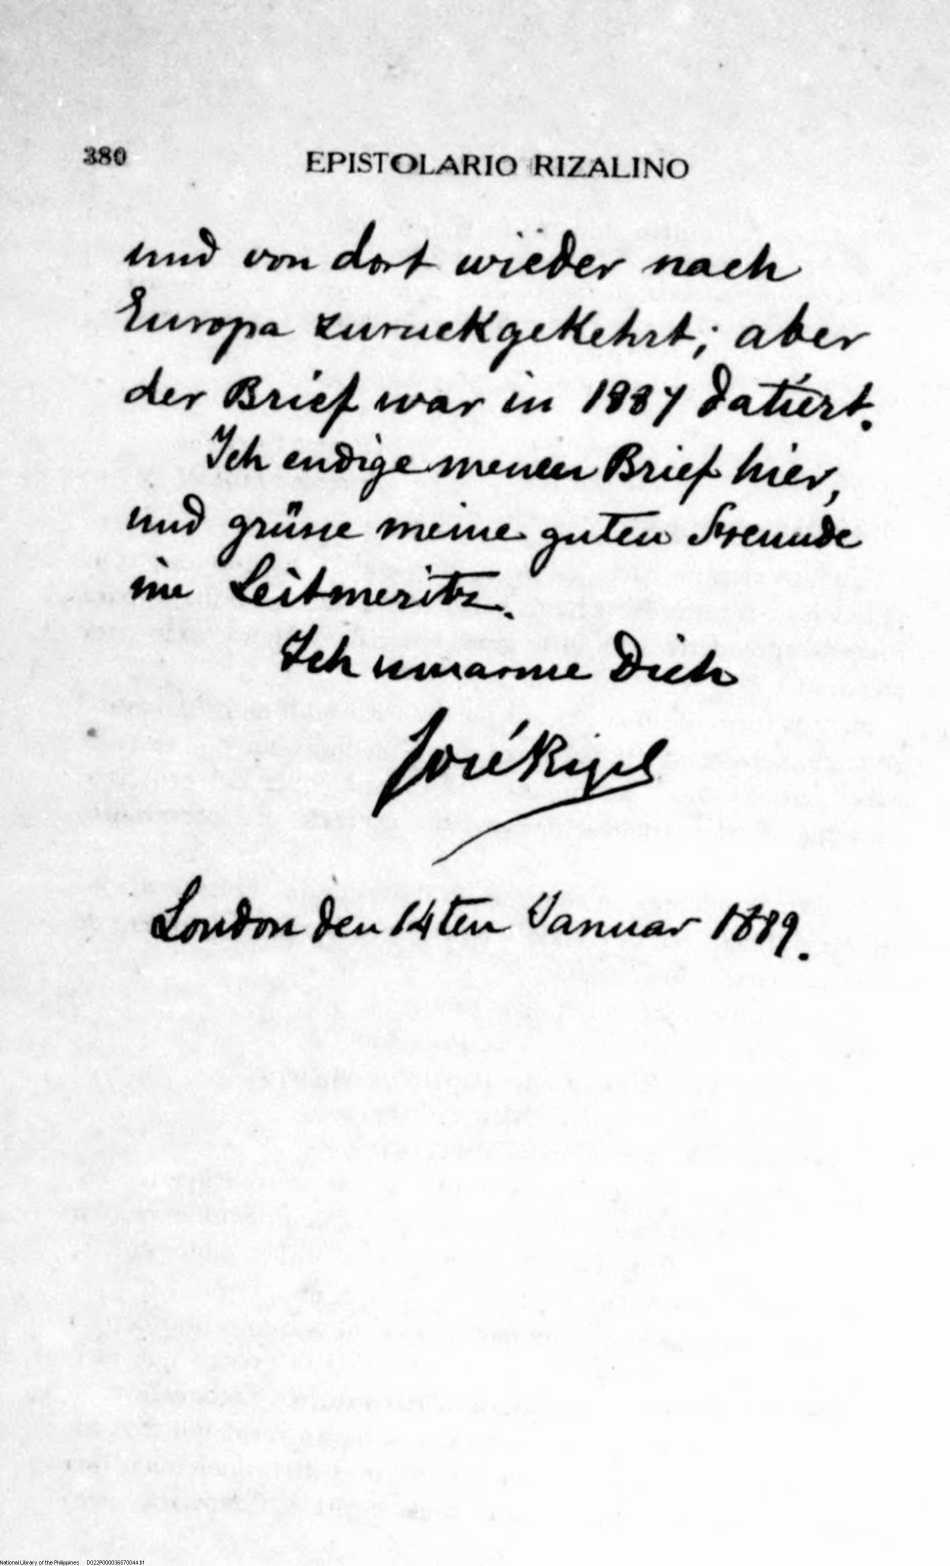 380
EPISTOLARIO RIZALINO
und von dort wieder nach
Europa zuruckgekehrt; aber
der Brief war in 1887 datiert.
Ich endige meinen Brief hier,
und grüsse meine guten Freunde
in Leitmeritz.
Ich umarme Dich
José Rizal
London den 14ten Januar 1889.
National Library of the Philippines